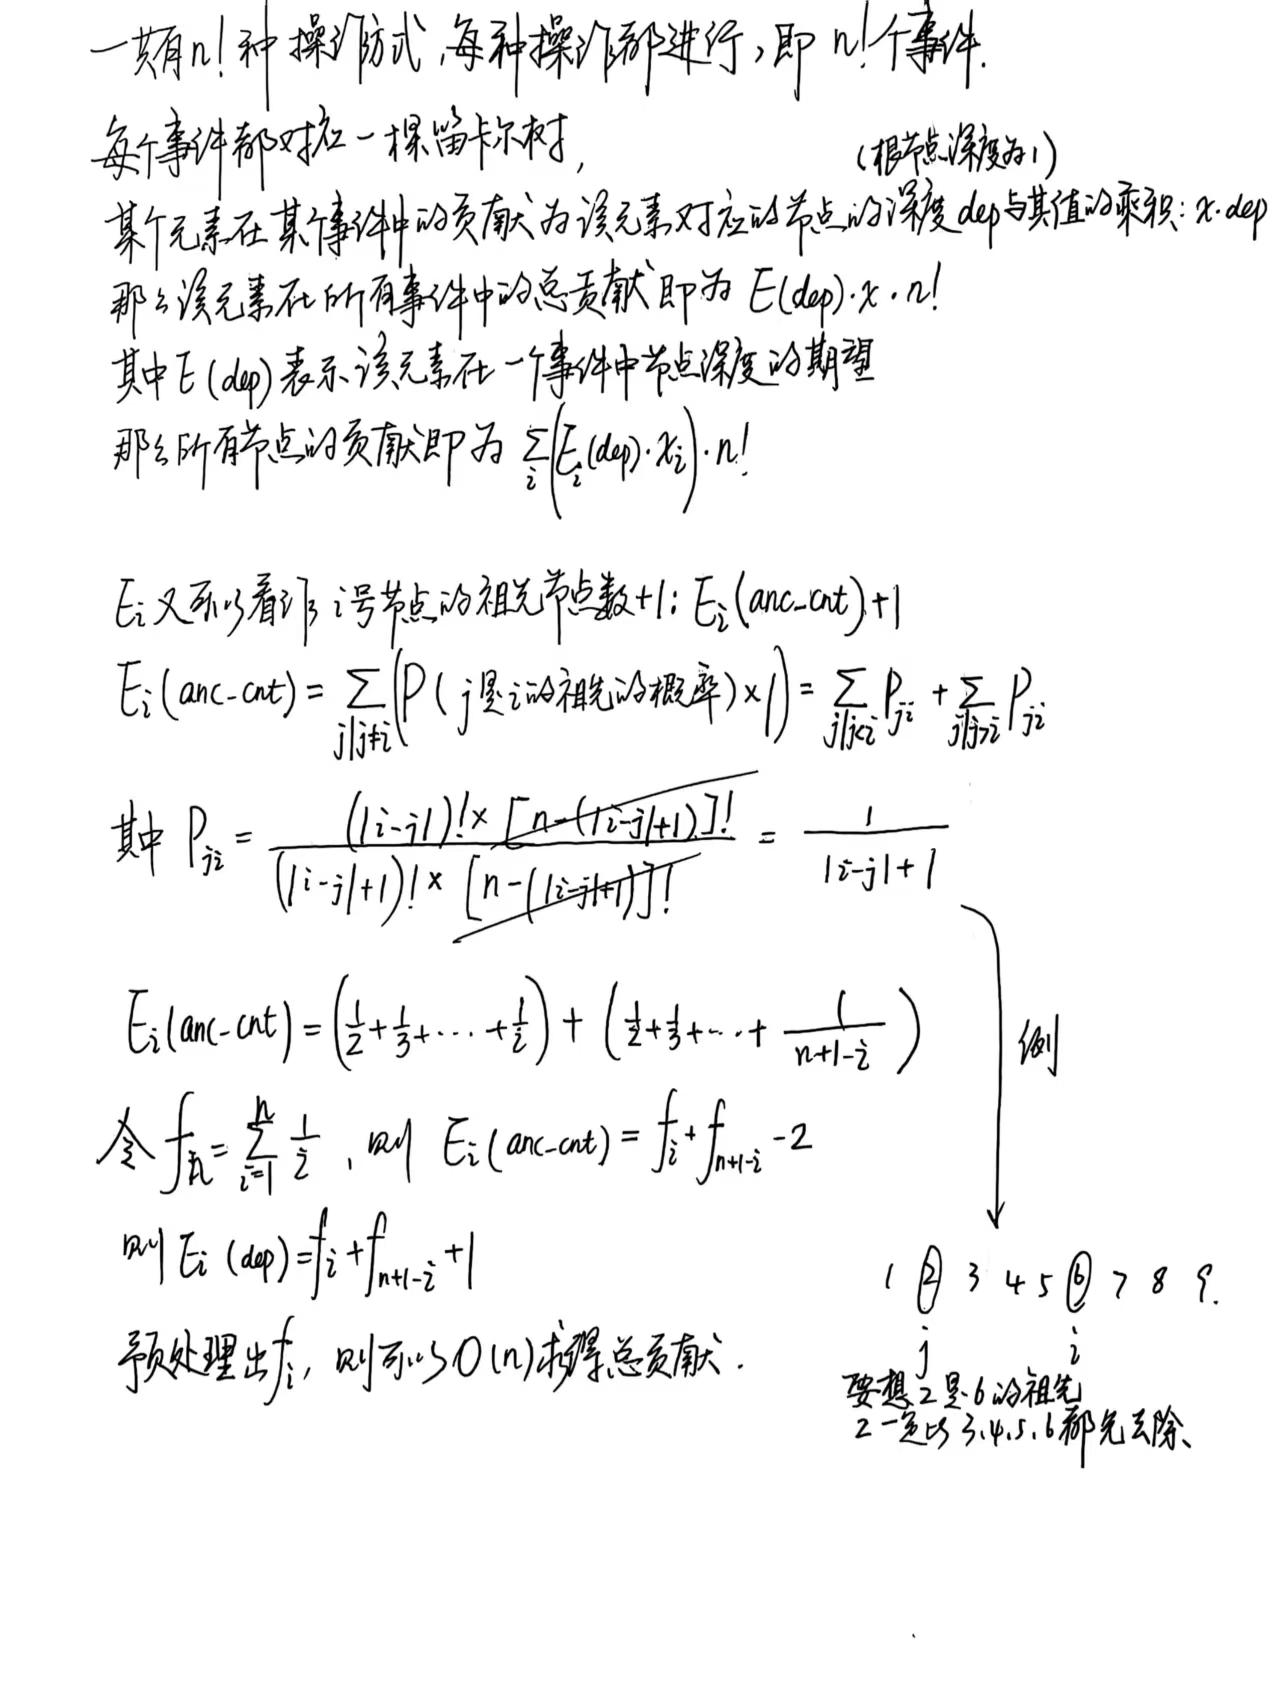 一共有n!种操作方式,每种操作都进行,即n!个事件.
每个事件都对应一棵笛卡尔树,
(根节点深度为1)
某个元素在某个事件中的贡献为该元素对应的节点的深度dep与其值的乘积: x·dep
那么该元素在所有事件中的总贡献即为 E(dep)·x·n!
其中E(dep)表示该元素在一个事件中节点深度的期望
那么所有节点的贡献即为 ∑_i (E_i(dep)·x_i)·n!
E_i又可以看作i号节点的祖先节点数+1: E_i(anc-cnt)+1
E_i(anc-cnt) = ∑_{j|j≠i} (P(j是i的祖先的概率)×1) = ∑_{j|j<i} P_{ji} + ∑_{j|j>i} P_{ji}
其中 P_{ji} = (|i-j|)!×[n-(|i-j|+1)]! / (|i-j|+1)!×[n-(|i-j|+1)]! = 1/(|i-j|+1)
E_i(anc-cnt) = (1/2+1/3+···+1/i) + (1/2+1/3+···+1/(n+1-i))
例
令 f_n = ∑_{i=1}^{n} 1/i, 则 E_i(anc-cnt) = f_i+f_{n+1-i}-2
则 E_i(dep)=f_i+f_{n+1-i}+1
1 2 3 4 5 6 7 8 9.
j i
预处理出f_i, 则可以O(n)求得总贡献.
要想2是6的祖先
2一定比3、4、5、6都先去除、